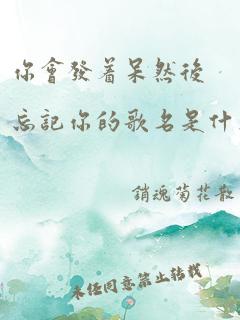 你會發着呆然後
忘記你的歌名是什
銷魂菊花散
未经同意禁止转载